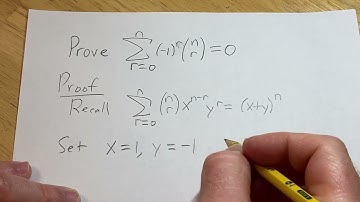 Prove $\sum_{r=0}^{n} (-1)^r \binom{n}{r} = 0$
Proof
Recall $\sum_{r=0}^{n} \binom{n}{r} x^{n-r} y^r = (x+y)^n$
Set x=1, y=-1